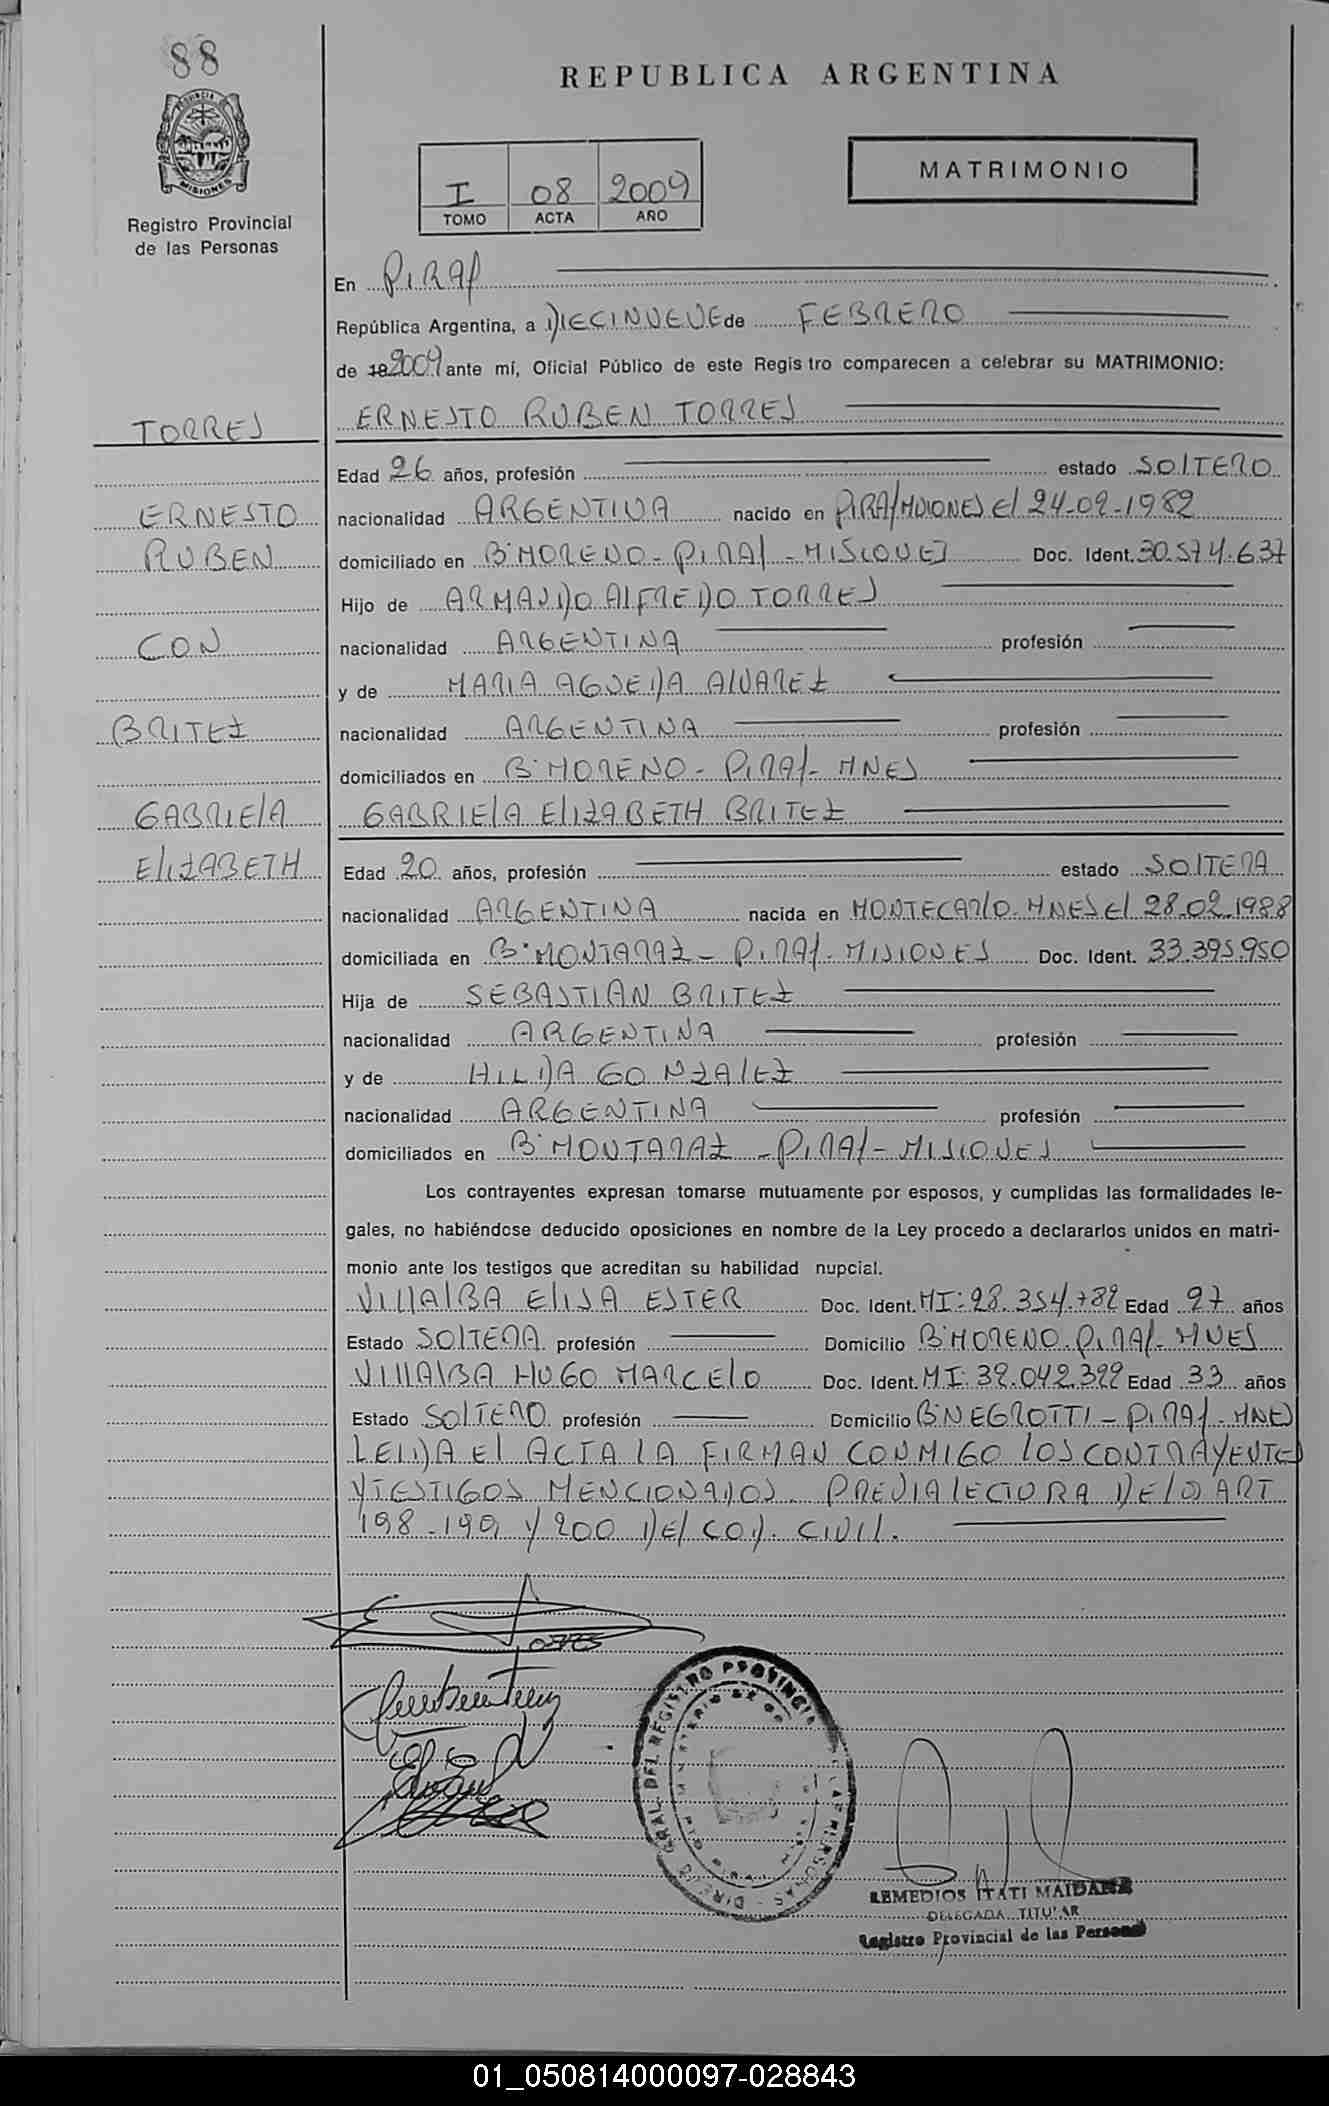 88
PROVINCIA DE
MISIONES
Registro Provincial
de las Personas
REPUBLICA ARGENTINA
I 08 2009
TOMO ACTA AÑO
MATRIMONIO
En PIRAY
República Argentina, a DIECINUEVE de FEBRERO
de 19 2009 ante mí, Oficial Público de este Regis tro comparecen a celebrar su MATRIMONIO:
TORRES
ERNESTO RUBEN TORRES
Edad 26 años, profesión estado SOLTERO
ERNESTO
nacionalidad ARGENTINA nacido en PIRAY MISIONES El 24-02-1982
RUBEN
domiciliado en Bº MORENO - PIRAY - MISIONES Doc. Ident. 30.574.637
Hijo de ARMANDO ALFREDO TORRES
CON
nacionalidad ARGENTINA profesión
y de MARIA AGUEDA ALVAREZ
BRITEZ
nacionalidad ARGENTINA profesión
domiciliados en Bº MORENO - PIRAY - MNES
GABRIELA
GABRIELA ELIZABETH BRITEZ
ELIZABETH
Edad 20 años, profesión estado SOLTERA
nacionalidad ARGENTINA nacida en MONTECARLO. MNES El 28.02.1988
domiciliada en Bº MONTARAZ - PIRAY - MISIONES Doc. Ident. 33.395.950
Hija de SEBASTIAN BRITEZ
nacionalidad ARGENTINA profesión
y de HILDA GONZALEZ
nacionalidad ARGENTINA profesión
domiciliados en Bº MONTARAZ - PIRAY - MISIONES
Los contrayentes expresan tomarse mutuamente por esposos, y cumplidas las formalidades le-
gales, no habiéndose deducido oposiciones en nombre de la Ley procedo a declararlos unidos en matri-
monio ante los testigos que acreditan su habilidad nupcial.
VILLALBA ELISA ESTER Doc. Ident. MI: 28.354.782 Edad 27 años
Estado SOLTERA profesión Domicilio Bº MORENO. PIRAY - MNES
VILLALBA HUGO MARCELO Doc. Ident. MI: 32.042.322 Edad 33 años
Estado SOLTERO profesión Domicilio Bº NEGROTTI - PIRAY - MNES
LEIDA El ACTA LA FIRMAN CONMIGO LOS CONTRAYENTES
Y TESTIGOS MENCIONADOS. PREVIA LECTURA DE LOS ART
198 - 199 Y 200 DEL COD. CIVIL.
REMEDIOS ITATI MAIDANA
DELEGADA TITULAR
Registro Provincial de las Personas
01_050814000097-028843